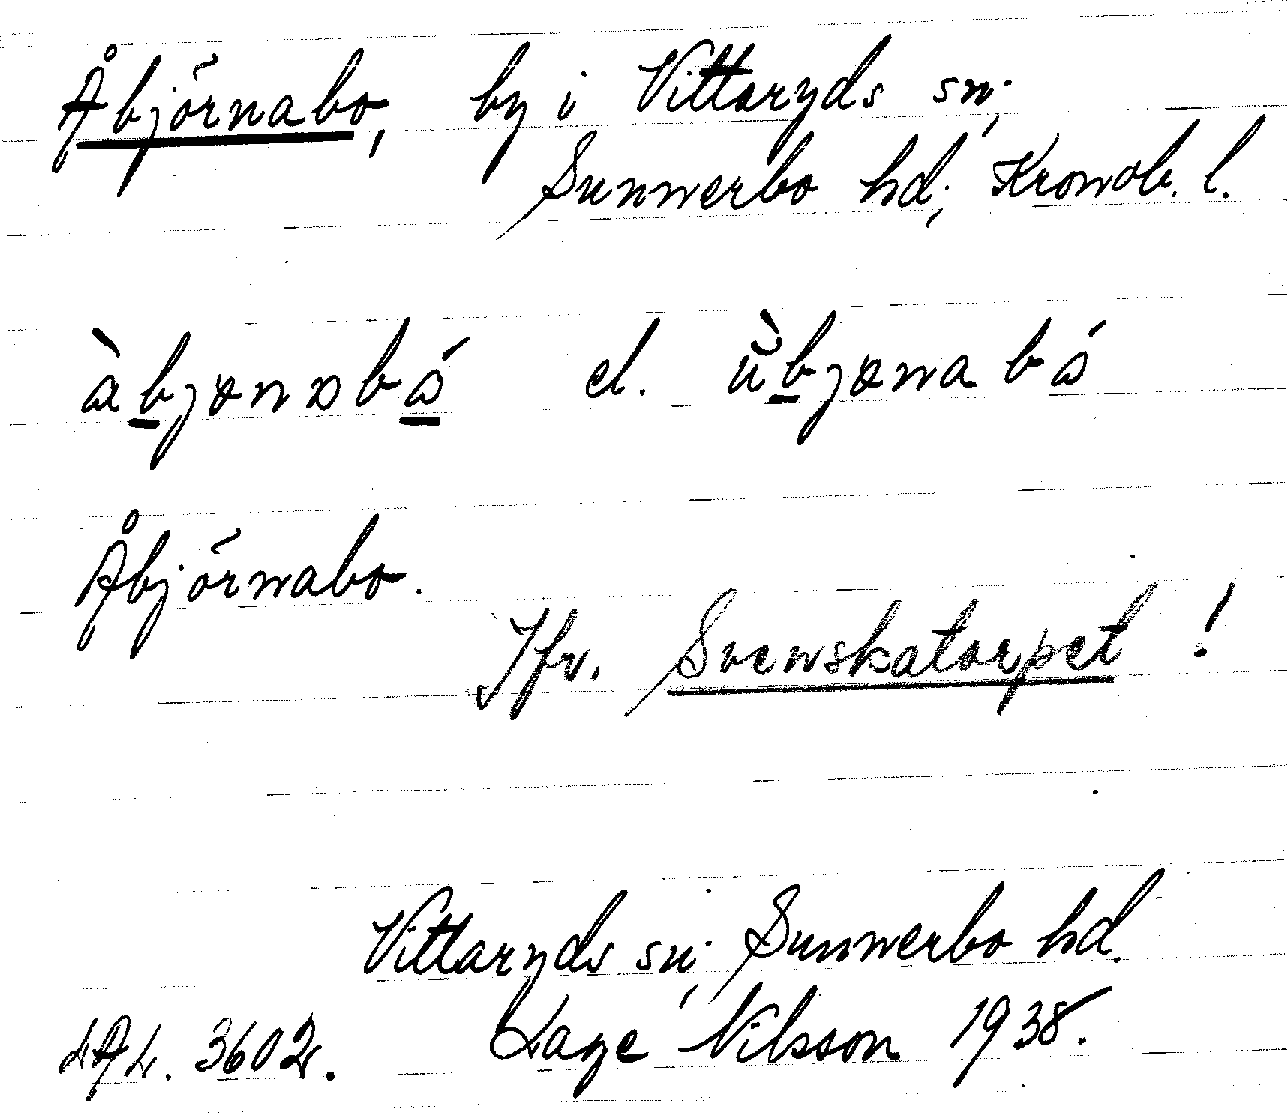 Åbjörnabo, by i Vittaryds sn;
Sunnerbo hd; Kronob. l.
àbjonabå el. ùbjonabå
Åbjörnabo.
Jfr. Svenskatorpet !
Vittaryds sn; Sunnerbo hd.
LAL. 3602. Lage Nilsson 1938.